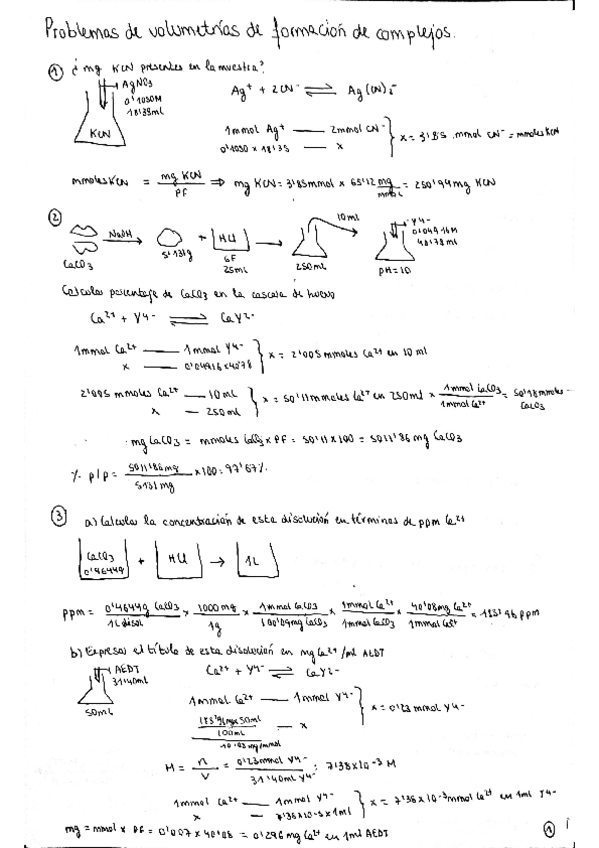 Problemas de volumetrías de formación de complejos.
① ¿ mg KCN presentes en la muestra?
AgNO3
0'1030M
KCN
Ag+ + 2CN- ⇌ Ag(CN)2-
1mmol Ag+ — 2mmol CN-
x
x = 3'85 mmol CN- = mmoles KCN
mmoles KCN = mg KCN / PF ⇒ mg KCN = 3'85mmol x 65'12 mg/mmol = 250'94mg KCN
②
NaOH
CaCO3
5'131g
+ HCl
6F
25mL
250mL
10ml
Y4-
0'04916M
40'78ml
pH=10
Calcular porcentaje de CaCO3 en la cascara de huevo
Ca2+ + Y4- ⇌ CaY2-
1mmol Ca2+ — 1mmol Y4-
x — 0'04916x40'78
x = 2'005 mmoles Ca2+ en 10ml
2'005 mmoles Ca2+ — 10mL
x — 250mL
x = 50'11mmoles Ca2+ en 250ml x 1mmol CaCO3 / 1mmol Ca2+ = mmoles CaCO3
mg CaCO3 = mmoles CaCO3 x PF = 50'11 x 100 = 5011'86 mg CaCO3
% p/p = 5011'86mg / 5131mg x 100 = 97'67%
③ a) Calcular la concentración de esta disolución en términos de ppm Ca2+
CaCO3
0'4644g
+ HCl → 1L
ppm = 0'4644g CaCO3 / 1L disol x 1000mg / 1g x 1mmol CaCO3 / 100'09mg CaCO3 x 1mmol Ca2+ / 1mmol CaCO3 x 40'08mg Ca2+ / 1mmol Ca2+ = ppm
b) Expresar el título de esta disolución en mg Ca2+/ml AEDT
AEDT
31'40ml
50mL
Ca2+ + Y4- ⇌ CaY2-
1mmol Ca2+ — 1mmol Y4-
— x
x = 0'23 mmol Y4-
M = n / V = 0'23mmol Y4- / 31'40mL Y4- = 7'38x10-3 M
1mmol Ca2+ — 1mmol Y4-
x — 7'38x10-3x1ml
x = 7'38x10-3mmol Ca2+ en 1ml Y4-
mg = mmol x PF = 0'007 x 40'08 = 0'296mg Ca2+ en 1ml AEDT
①